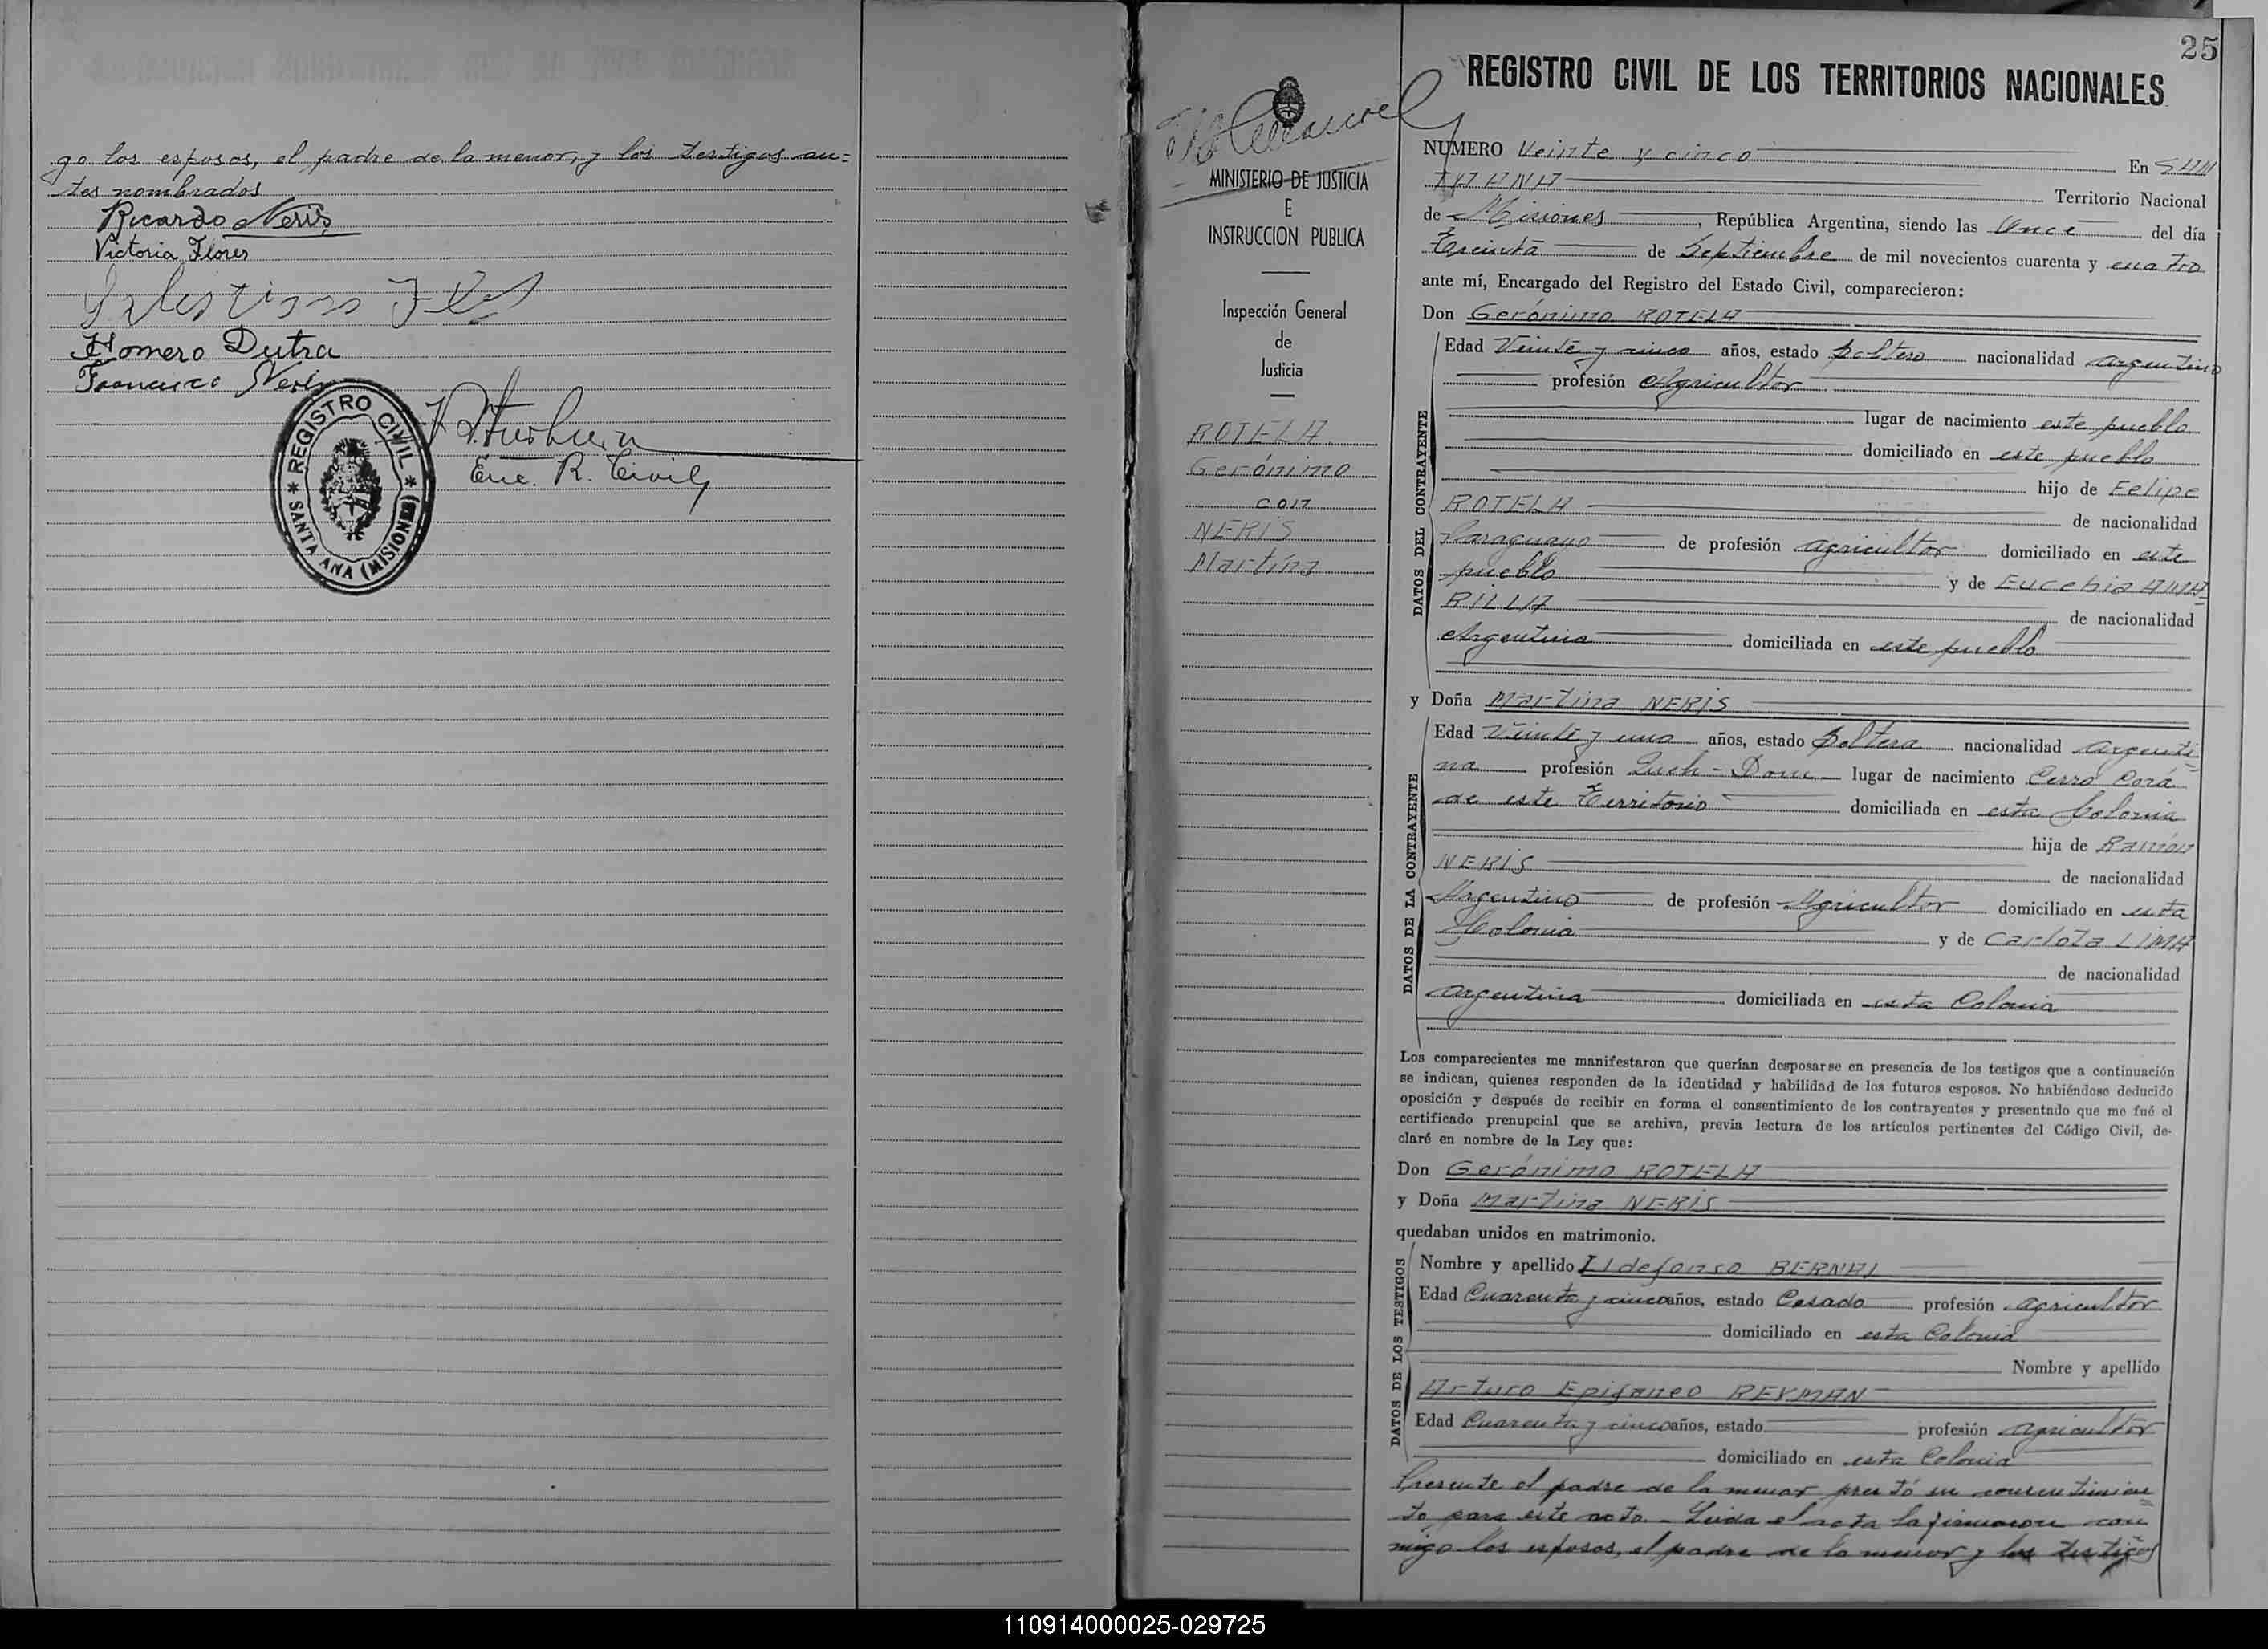 go los esposos, el padre de la menor, y los testigos an=
tes nombrados
Ricardo Neris
Victoria Flores
Homero Dutra
Francisco Neris
Enc. R. Civil
* REGISTRO CIVIL *
SANTA ANA (MISIONES)
25
REGISTRO CIVIL DE LOS TERRITORIOS NACIONALES
MINISTERIO DE JUSTICIA
E
INSTRUCCION PUBLICA
Inspección General
de
Justicia
ROTELA
Gerónimo
con
NERIS
Martina
NUMERO Veinte y cinco En SAN
TA ANA Territorio Nacional
de Misiones, República Argentina, siendo las Once del día
Treinta de Septiembre de mil novecientos cuarenta y cuatro
ante mí, Encargado del Registro del Estado Civil, comparecieron:
Don Gerónimo ROTELA
DATOS DEL CONTRAYENTE
Edad Veinte y cinco años, estado soltero nacionalidad argentino
profesión Agricultor
lugar de nacimiento este pueblo
domiciliado en este pueblo
hijo de Felipe
ROTELA de nacionalidad
Paraguayo de profesión agricultor domiciliado en este
pueblo y de Eucebia AMA-
RILLA de nacionalidad
Argentina domiciliada en este pueblo
y Doña Martina NERIS
DATOS DE LA CONTRAYENTE
Edad Veinte y una años, estado soltera nacionalidad argenti-
na profesión Queh-Dom lugar de nacimiento Cerro Corá
de este Territorio domiciliada en esta Colonia
hija de Ramón
NERIS de nacionalidad
Argentino de profesión Agricultor domiciliado en esta
Colonia y de Carlota LIMA
de nacionalidad
argentina domiciliada en esta Colonia
Los comparecientes me manifestaron que querían desposarse en presencia de los testigos que a continuación
se indican, quienes responden de la identidad y habilidad de los futuros esposos. No habiéndose deducido
oposición y después de recibir en forma el consentimiento de los contrayentes y presentado que me fué el
certificado prenupcial que se archiva, previa lectura de los artículos pertinentes del Código Civil, de-
claré en nombre de la Ley que:
Don Gerónimo ROTELA
y Doña Martina NERIS
quedaban unidos en matrimonio.
DATOS DE LOS TESTIGOS
Nombre y apellido Ildefonso BERNAL
Edad Cuarenta y cinco años, estado Casado profesión agricultor
domiciliado en esta Colonia
Nombre y apellido
Arturo Epifaneo REYMAN
Edad Cuarenta y cinco años, estado profesión agricultor
domiciliado en esta Colonia
Presente el padre de la menor prestó su consentimien=
to para este acto.- Leida el acta la firmaron con
migo los esposos, el padre de la menor y los testigos
110914000025-029725